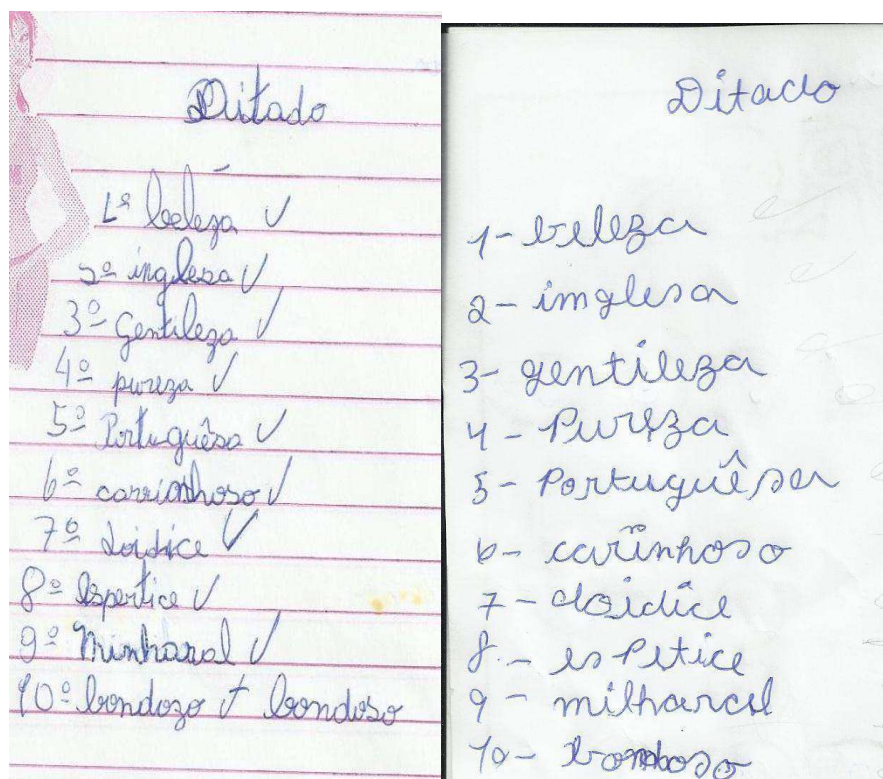 Ditado
1ª beleza ✓
2ª inglesa ✓
3º Gentileza ✓
4º pureza ✓
5º Portuguêsa ✓
6º ✓
7º doidice ✓
8º Espertice ✓
9º Minharal ✓
10º bondozo ✓ bondoso
Ditado
1- beleza
2- imglesa
3- gentileza
4- Pureza
5- Portuguêsa
6- carinhoso
7- doidice
8- espetice
9- milharal
10- bomdoso